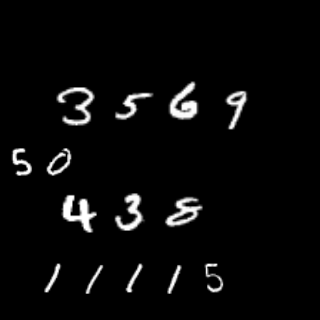 3569
50
438
11115